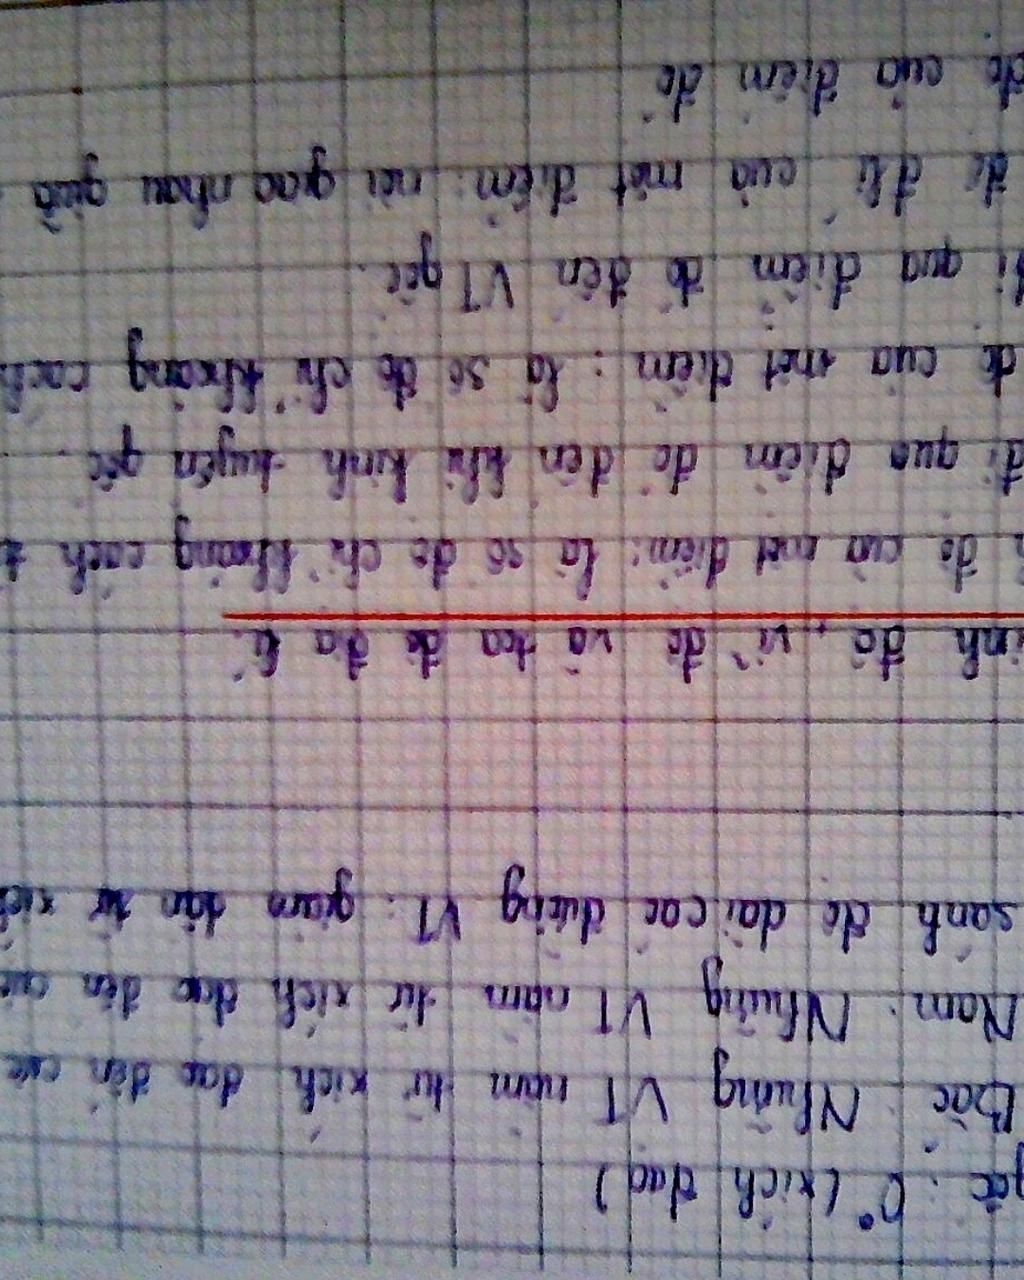 gốc : 0° (xích đạo)
Bắc : Những VT nằm từ xích đạo đến cực
Nam : Những VT nằm từ xích đạo đến cực
sánh độ dài các đường VT : giảm dần từ xích
inh độ, vĩ độ và toạ độ địa lí.
độ của một điểm: là số độ chỉ khoảng cách
đi qua điểm đó đến khi kinh tuyến gốc.
độ của một điểm : là số độ chỉ khoảng cách
đi qua điểm đó đến VT gốc.
độ đlí của một điểm: nơi giao nhau giữa
độ của điểm đó